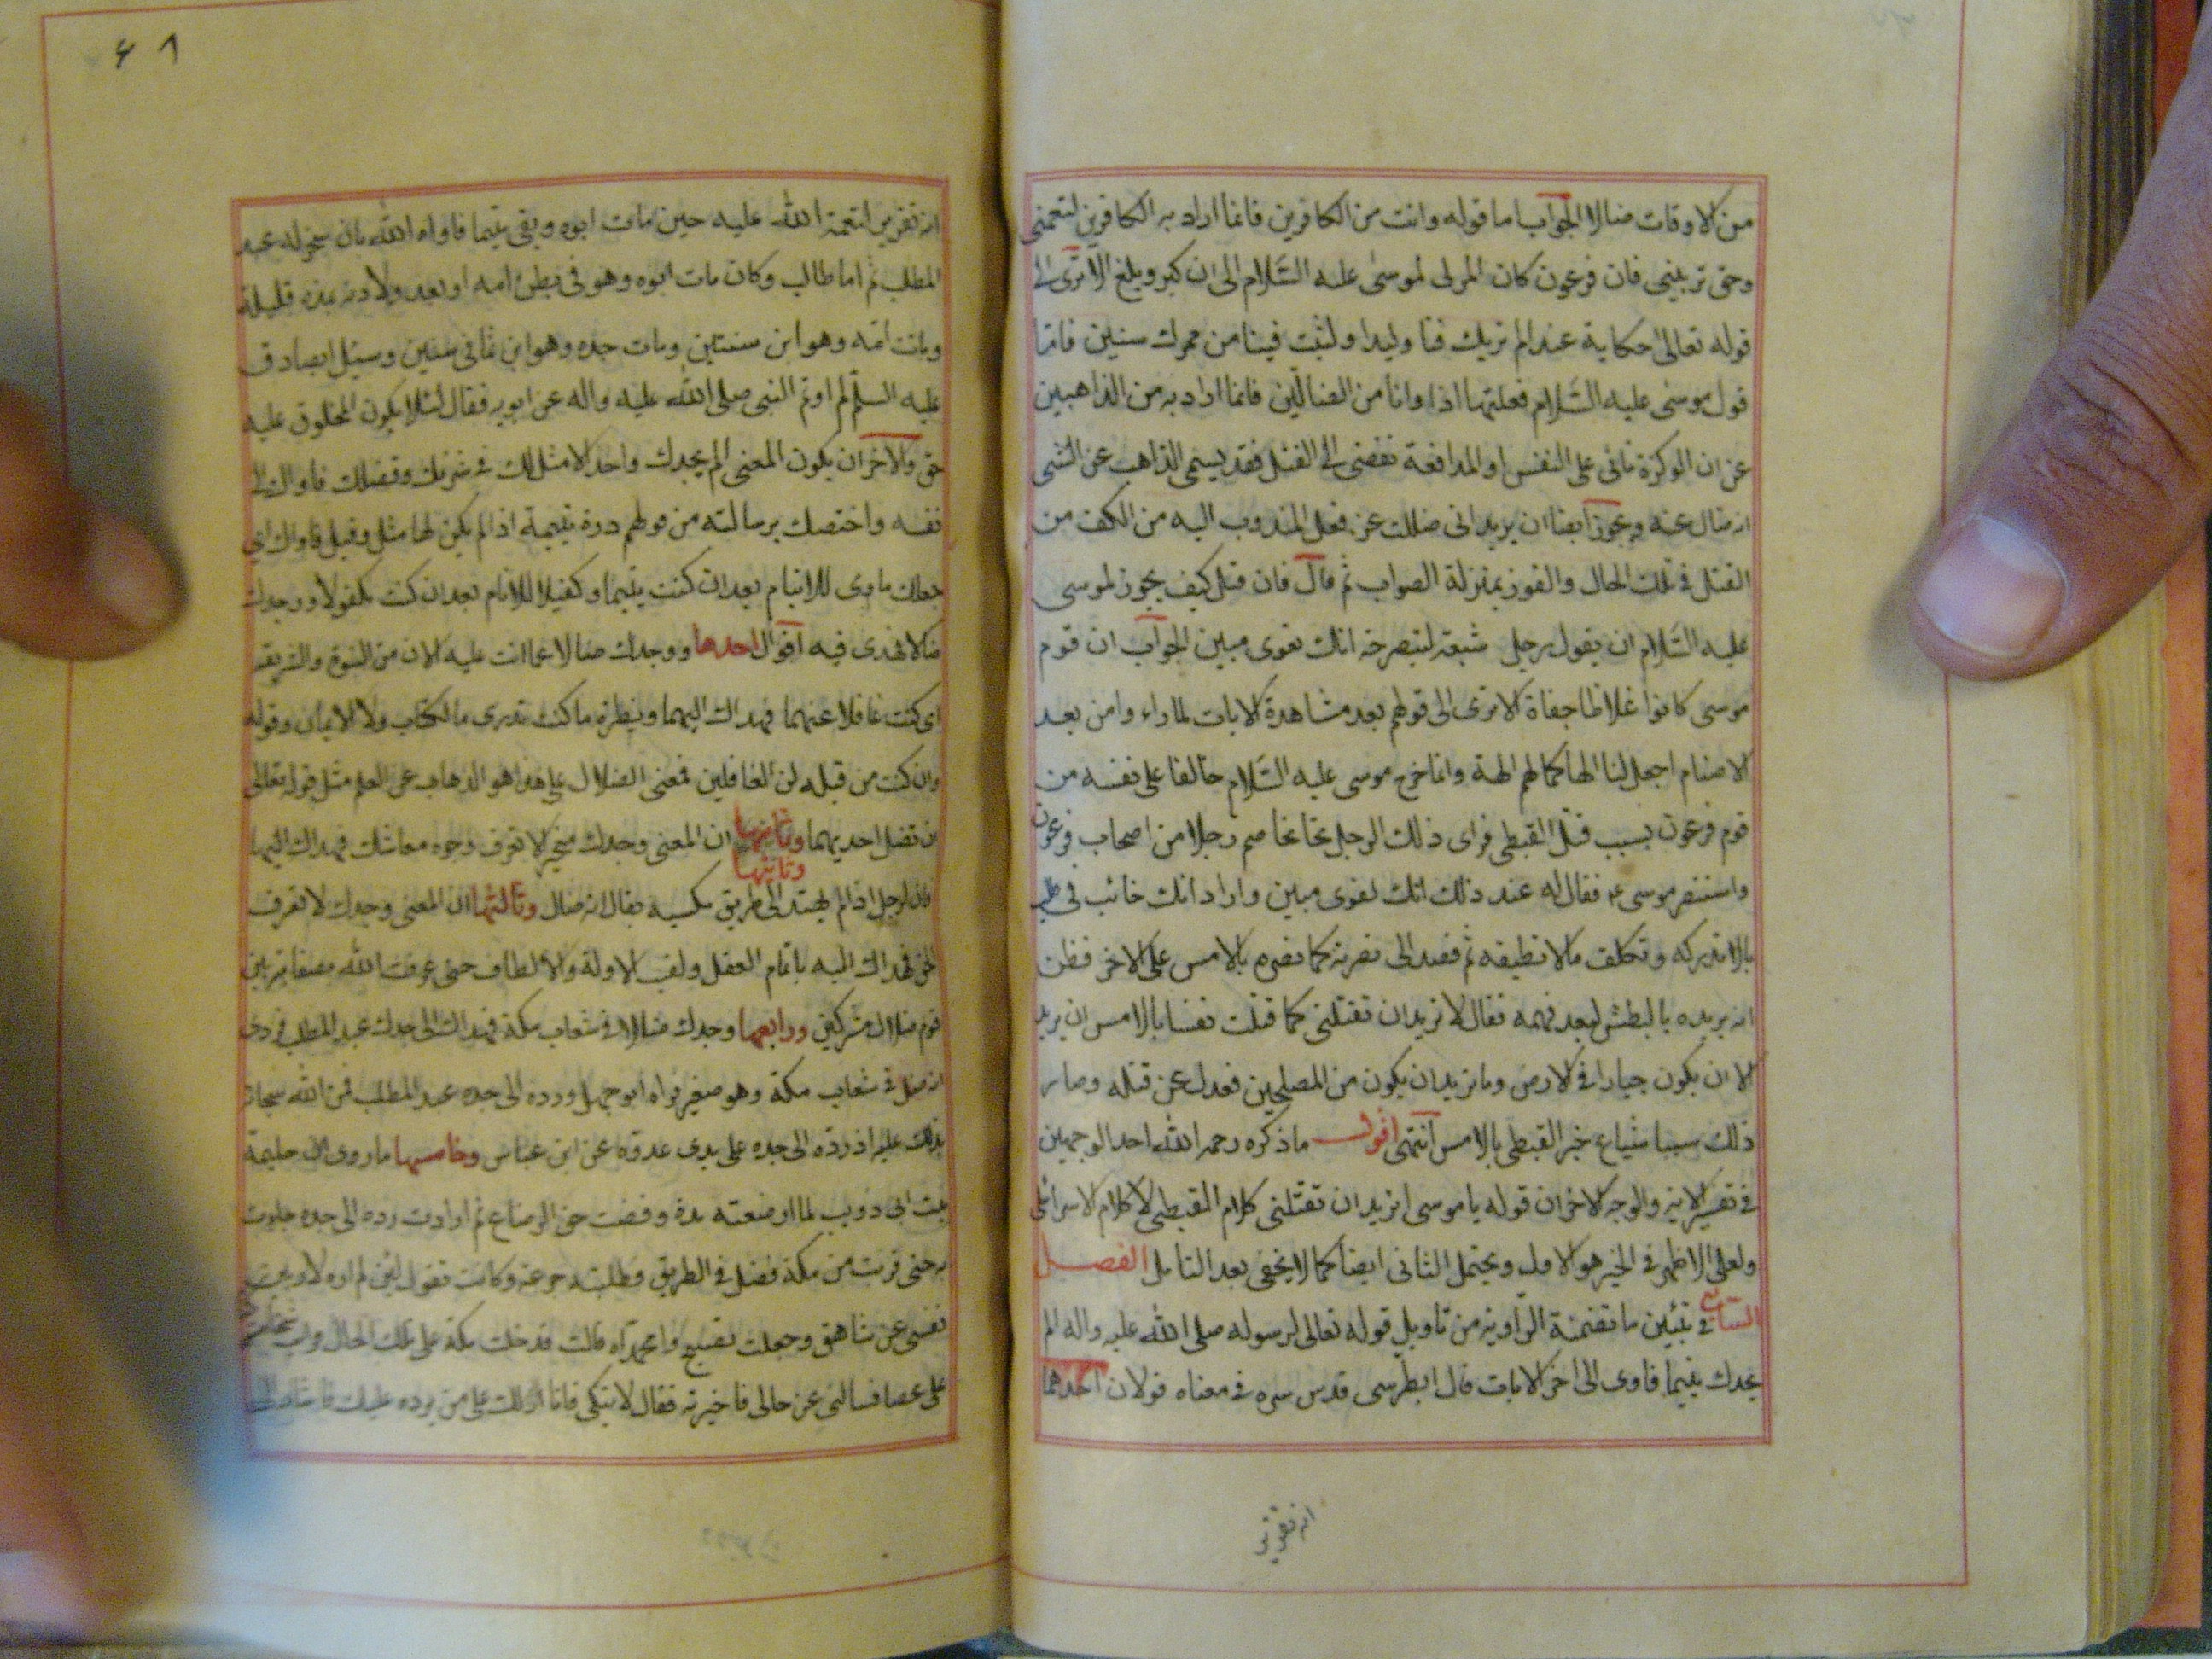 من الاوقات ضالا الجواب اما قوله وانت من الكافرين فانما اراد به الكافرين لنعمتى
وحق تربيتى فان فرعون كان المربى لموسى عليه السّلام الى ان كبر وبلغ الا ترى الى
قوله تعالى حكاية عنه الم نربك فينا وليدا ولبثت فينا من عمرك سنين فامّا
قول موسى عليه السّلام فعلتها اذا وانا من الضالّين فانما اراد به من الذاهبين
عن ان الوكزة تاتى على النفس او المدافعة تفضى الى القتل فقد يسمى الذاهب عن الشى
انه ضال عنه ويجوز ايضا ان يريد انى ضللت عن فعل المندوب اليه من الكف من
القتل فى تلك الحال والفوز بمنزلة الصواب ثم قال فان قيل كيف يجوز لموسى
عليه السّلام ان يقول لرجل شيعته ليتصرخه انك لغوى مبين الجواب ان قوم
موسى كانوا غلاظا جفاة الا ترى الى قولهم بعد مشاهدة الايات لما راء وا من يعبد
الاصنام اجعل لنا الها كما لهم الهة وانما خرج موسى عليه السّلام خائفا على نفسه من
قوم فرعون بسبب قتل القبطى فراى ذلك الرجل يخاصم رجلا من اصحاب فرعون
واستنصر موسى ع فقال له عند ذلك انك لغوى مبين واراد انك خائب فى طلب
مالا تدركه وتكلف مالا تطيقه ثم قصد الى نصرته كما نصره بالامس على الاخر فظن
انه يريده بالبطش لبعد فهمه فقال لا تريد ان تقتلنى كما قتلت نفسا بالامس ان تريد
الا ان يكون جبارا فى الارض وما تريد ان يكون من المصلحين فعدل عن قتله وصار
ذلك سببا لشياع خبر القبطى بالامس انتهى اقول ما ذكره رحمه الله احد الوجهين
فى تفسير الاية والوجه الاخر ان قوله يا موسى اتريد ان تقتلنى كلام القبطى لا كلام الاسرائلى
ولعل الاظهر فى الخبر هو الاول ويحتمل الثانى ايضا كما لا يخفى بعد التامل الفصل
فى تبيين ما تضمنه الرّاوية من تاويل قوله تعالى لرسوله صلى الله عليه واله الم
يجدك يتيما فاوى الى اخر الايات قال الطبرسى قدس سره فى معناه قولان احدهما
انه تقرير
۶۸
انه تقرير لنعمة الله عليه حين مات ابوه وبقى يتيما فاواه الله بان سخر له عبد
المطلب ثم ابا طالب وكان مات ابوه وهو فى بطن امه او بعد ولادته بمدة قليلة
وماتت امّه وهو ابن سنتين ومات جده وهو ابن ثمانى سنين وسئل الصادق
عليه السلم لم اوتم النبى صلى الله عليه واله عن ابويه فقال لئلا يكون لمخلوق عليه
حق والاخر ان يكون المعنى الم يجدك واحدا لا مثل لك فى شرفك وفضلك فاواك الى
نفسه واختصك برسالته من قولهم درة يتيمة اذا لم يكن لها مثل وقيل فاواك اى
جعلك ماوى للايتام بعد ان كنت يتيما وكفيلا للانام بعد ان كنت مكفولا ووجدك
ضالا فهدى فيه اقوال احدها ووجدك ضالا عما انت عليه الان من النبوة والشريعة
اى كنت غافلا عنهما فهداك اليهما ونظيره ما كنت تدرى ما الكتاب ولا الايمان وقوله
وان كنت من قبله لمن الغافلين فمعنى الضلال على هذا هو الذهاب عن العلم مثل قوله تعالى
ان تضل احديهما وثانيها ان المعنى وجدك متحيرا لا تعرف وجوه معاشك فهداك اليها
وثانيها
فان الرجل اذا لم يهتد الى طريق مكسبه يقال انه ضال وثالثها ان المعنى وجدك لا تعرف
الحق فهداك اليه باتمام العقل ونصب الادلة والالطاف حتى عرفت الله بصفاته بين
قوم ضلال مشركين ورابعها وجدك ضالا فى شعاب مكة فهداك الى جدك عبد المطلب فروى
انه ضل فى شعاب مكة وهو صغير فراه ابو جهل ورده الى جده عبد المطلب فمن الله سبحانه
بذلك عليه اذ رده الى جده على يدى عدوه عن ابن عباس وخامسها ما روى ان حليمة
بنت ابى ذويب لما ارضعته مدة وقضت حق الرضاع ثم ارادت رده الى جده جاءت
به حتى قربت من مكة فضل فى الطريق فطلبته جزعة وكانت تقول لئن لم اره لارمين
نفسى عن شاهق وجعلت تصيح وامحمداه قالت فدخلت مكة على تلك الحال
على عصا فسالنى عن حالى فاخبرته فقال لا تبكى فانا ادلك على من يرده عليك فاشار الى